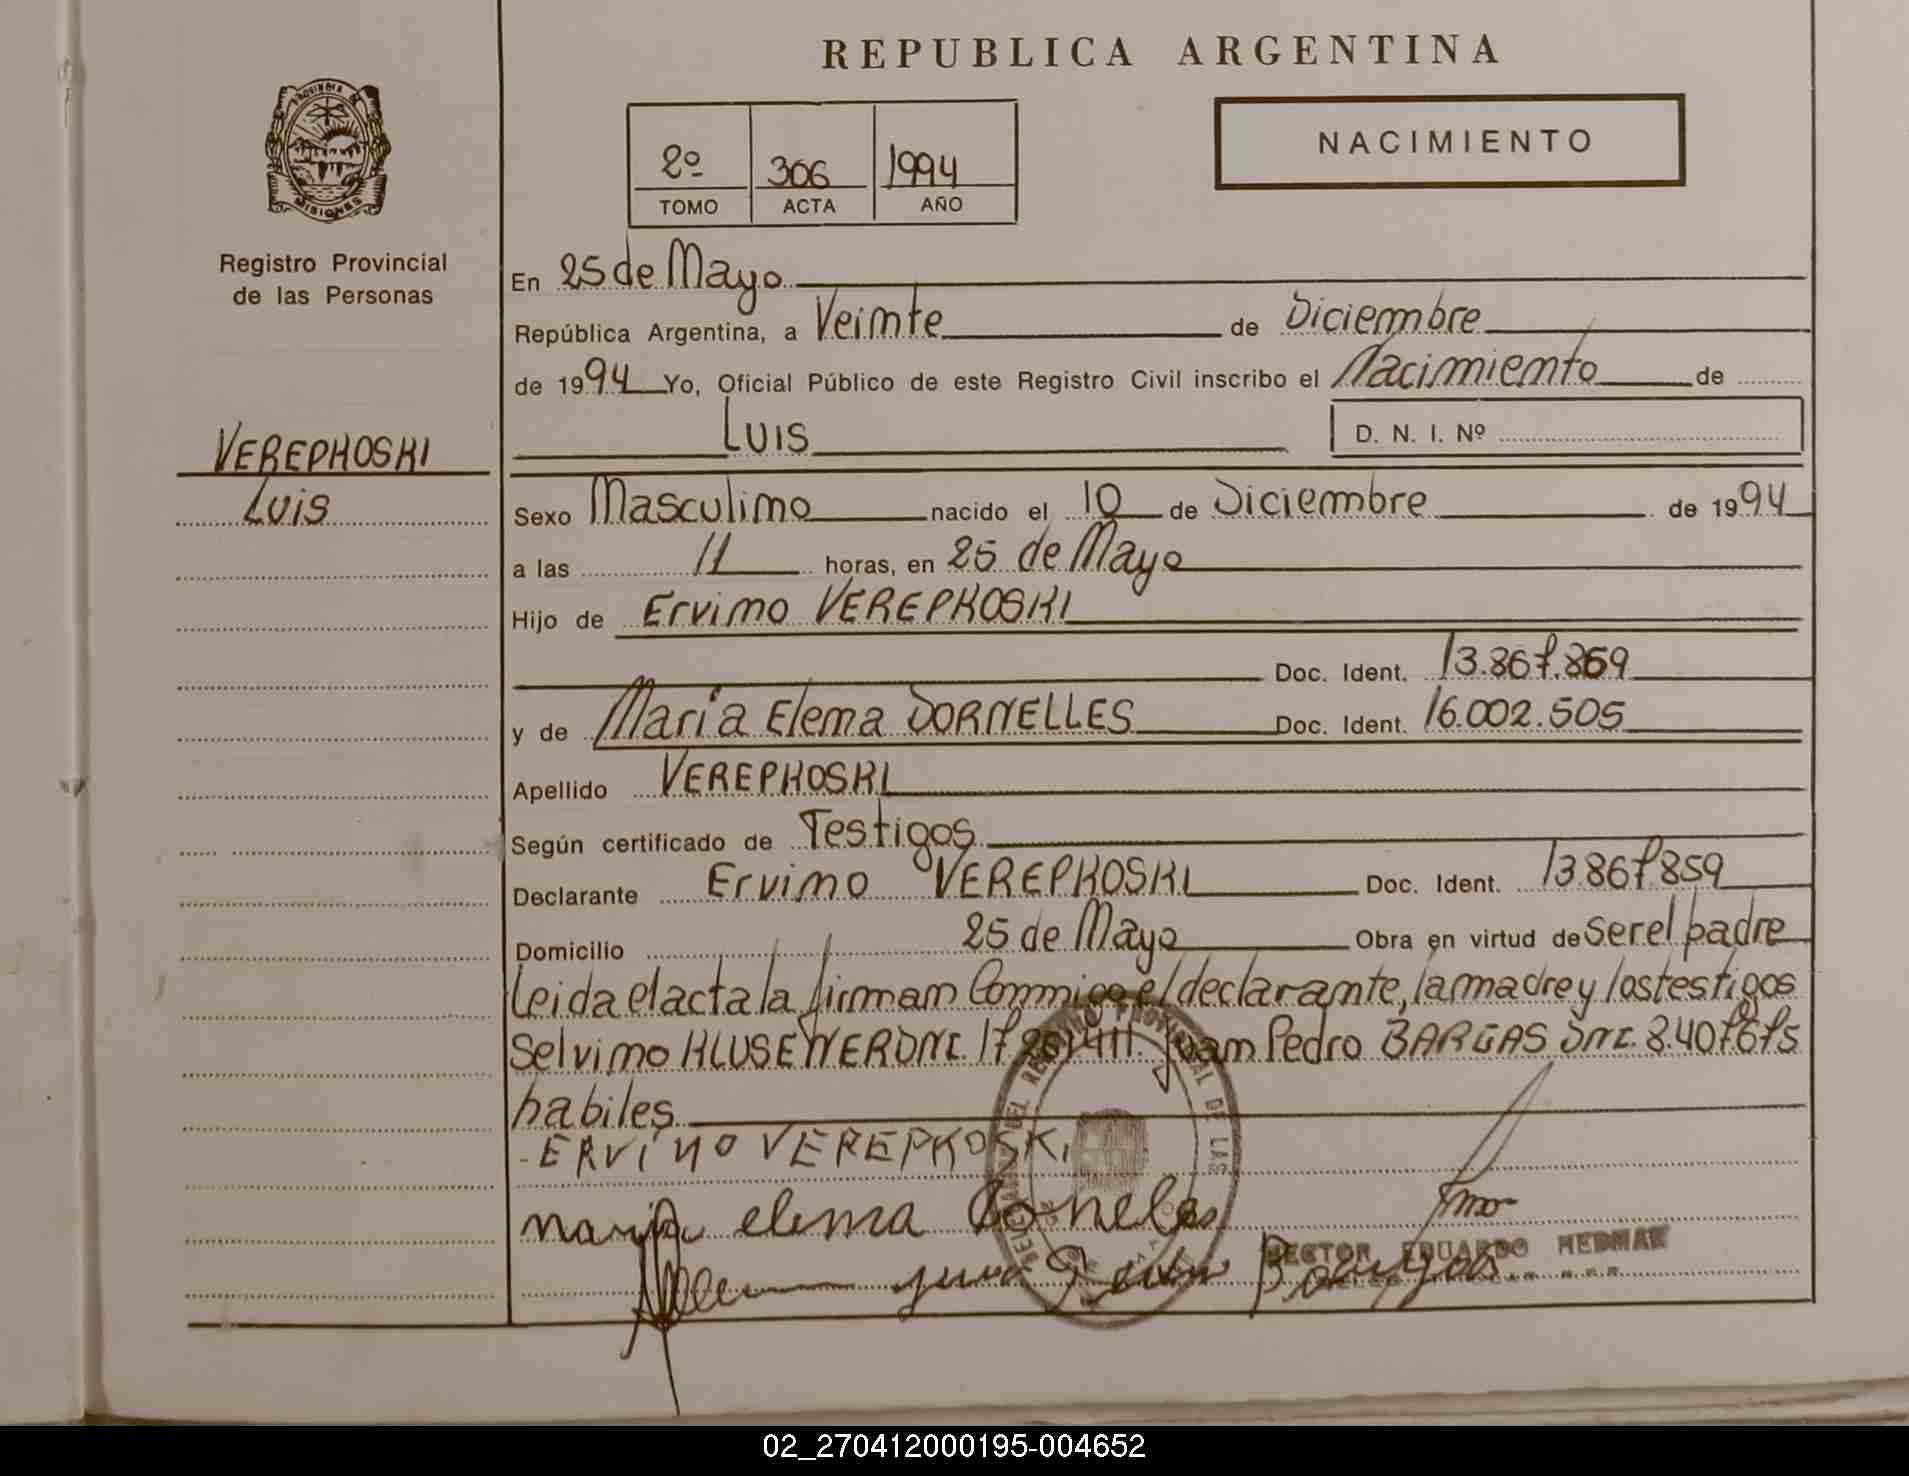 REPUBLICA ARGENTINA
PROVINCIA DE
MISIONES
Registro Provincial
de las Personas
2º 306 1994
TOMO ACTA AÑO
NACIMIENTO
En 25 de Mayo
República Argentina, a Veinte de Diciembre
de 1994 Yo, Oficial Público de este Registro Civil inscribo el Nacimiento de
LUIS
D. N. I. Nº
VEREPKOSKI
Luis
Sexo Masculino nacido el 10 de Diciembre de 1994
a las 11 horas, en 25 de Mayo
Hijo de Ervino VEREPKOSKI
Doc. Ident. 13.867.859
y de Maria Elena DORNELLES Doc. Ident. 16.002.505
Apellido VEREPKOSKI
Según certificado de Testigos
Declarante Ervino VEREPKOSKI Doc. Ident. 13867859
Domicilio 25 de Mayo Obra en virtud de ser el padre
Leida el acta la firman Conmigo el declarante, la madre y los testigos
Selvino KLUSENER DNI. Juan Pedro BARGAS DNI. 8.407.675
habiles
ERVINO VEREPKOSKI
maria elena Dorneles
Juan Pedro Bargas
HECTOR EDUARDO
02_270412000195-004652